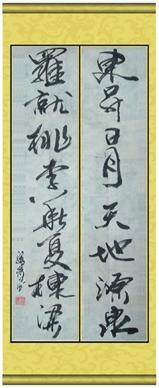 東昇日月天地源泉
羅就桃李華夏棟梁